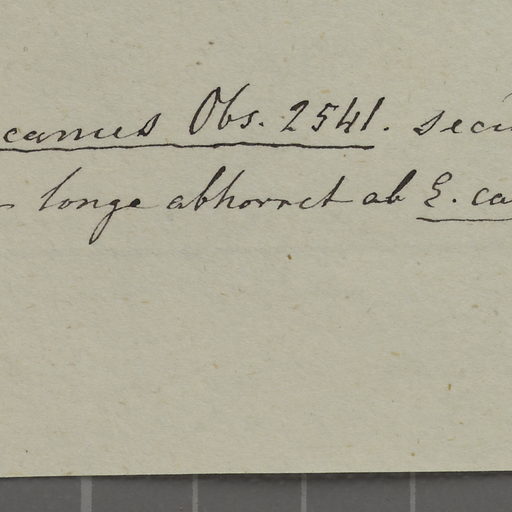 canus Obs. 2541. secu
longe abhorret ab E. ca